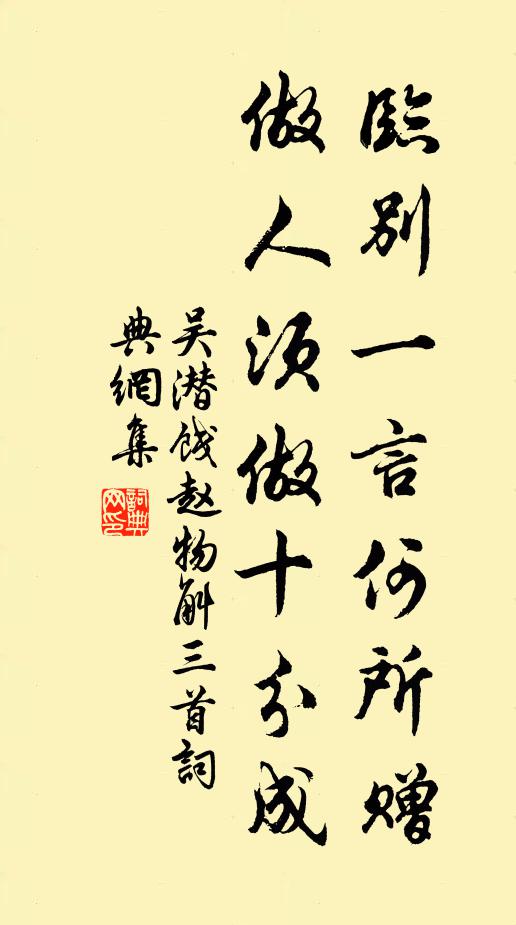 臨别一言何所赠
做人須做十分成
吴潜餞赵物斛三首詞
典網集
詞典
网印